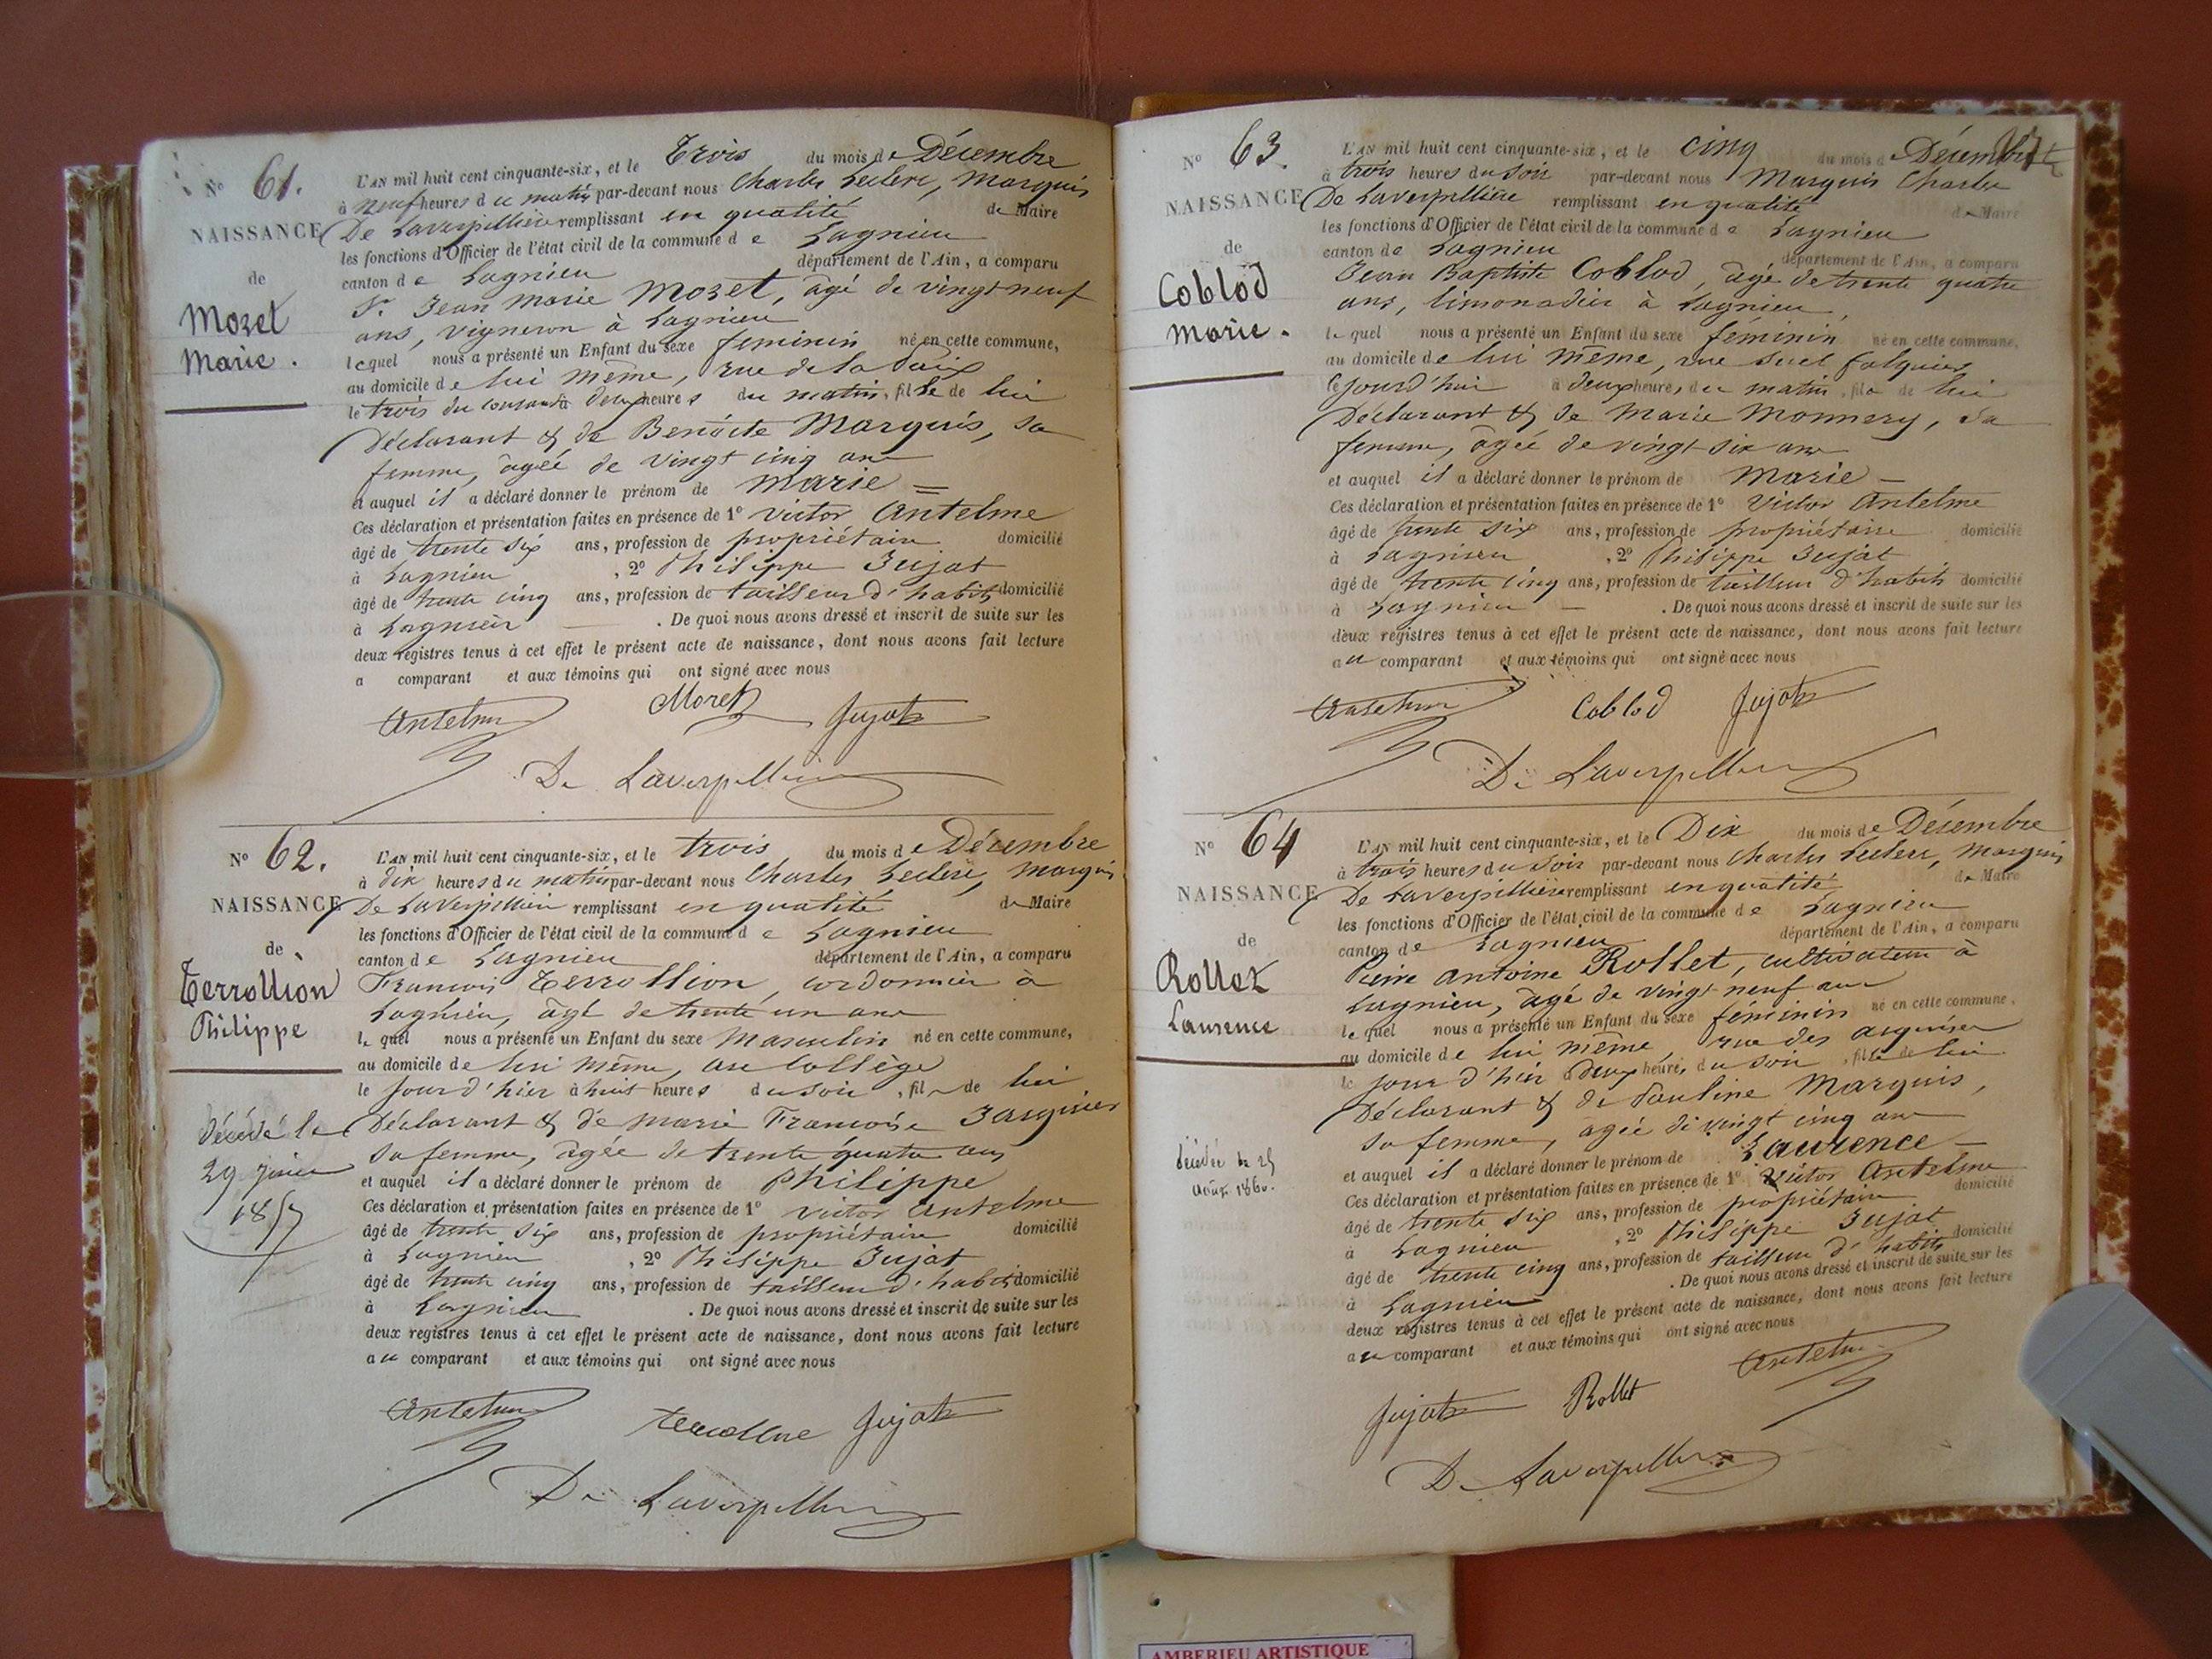 N° 61.
NAISSANCE
de
Mozet
Marie.
L'AN mil huit cent cinquante-six, et le Trois du mois de Décembre
à neuf heures du matin par-devant nous Charles Leclerc, Marquis
De Laverpillière remplissant en qualité de Maire
les fonctions d'Officier de l'état civil de la commune de Lagnieu
canton de Lagnieu département de l'Ain, a comparu
Sr. Jean Marie Mozet, âgé de vingt neuf
ans, vigneron à Lagnieu
lequel nous a présenté un Enfant du sexe féminin né en cette commune,
au domicile de lui même, rue de la Paix
le trois du courant à deux heures du matin, fille de lui
Déclarant & de Benoite Marquis, sa
femme, âgée de vingt cinq ans
et auquel il a déclaré donner le prénom de Marie =
Ces déclaration et présentation faites en présence de 1° Victor Antelme
âgé de trente six ans, profession de propriétaire domicilié
à Lagnieu, 2° Philippe Jujat
âgé de trente cinq ans, profession de tailleur d'habits domicilié
à Lagnieu. De quoi nous avons dressé et inscrit de suite sur les
deux registres tenus à cet effet le présent acte de naissance, dont nous avons fait lecture
a comparant et aux témoins qui ont signé avec nous
Antelme Moret Jujat
De Laverpillière
N° 62.
NAISSANCE
de
Terrollion
Philippe
Décédé le
29
1857
L'AN mil huit cent cinquante-six, et le trois du mois de Décembre
à dix heures du matin par-devant nous Charles Leclerc, Marquis
De Laverpillière remplissant en qualité de Maire
les fonctions d'Officier de l'état civil de la commune de Lagnieu
canton de Lagnieu département de l'Ain, a comparu
François Terrollion, cordonnier à
Lagnieu, âgé de trente un ans
le quel nous a présenté un Enfant du sexe Masculin né en cette commune,
au domicile de lui même, au Collège
le jour d'hier à huit heures du soir, fils de lui
Déclarant & de Marie Françoise
sa femme, âgée de trente quatre ans
et auquel il a déclaré donner le prénom de Philippe
Ces déclaration et présentation faites en présence de 1° Victor Antelme
âgé de trente six ans, profession de propriétaire domicilié
à Lagnieu, 2° Philippe Jujat
âgé de trente cinq ans, profession de tailleur d'habits domicilié
à Lagnieu. De quoi nous avons dressé et inscrit de suite sur les
deux registres tenus à cet effet le présent acte de naissance, dont nous avons fait lecture
au comparant et aux témoins qui ont signé avec nous
Antelme Jujat
De Laverpillière
N° 63.
NAISSANCE
de
Coblod
Marie.
L'AN mil huit cent cinquante-six, et le cinq du mois de Décembre
à trois heures du soir par-devant nous Marquis Charles
De Laverpillière remplissant en qualité de Maire
les fonctions d'Officier de l'état civil de la commune de Lagnieu
canton de Lagnieu département de l'Ain, a comparu
Jean Baptiste Coblod, âgé de trente quatre
ans, limonadier à Lagnieu,
le quel nous a présenté un Enfant du sexe féminin né en cette commune,
au domicile de lui même, rue
Cejourd'hui à deux heures du matin, fille de lui
Déclarant & de Marie Monnery, sa
femme, âgée de vingt six ans
et auquel il a déclaré donner le prénom de Marie —
Ces déclaration et présentation faites en présence de 1° Victor Antelme
âgé de trente six ans, profession de propriétaire domicilié
à Lagnieu, 2° Philippe Jujat
âgé de trente cinq ans, profession de tailleur d'habits domicilié
à Lagnieu —. De quoi nous avons dressé et inscrit de suite sur les
deux registres tenus à cet effet le présent acte de naissance, dont nous avons fait lecture
au comparant et aux témoins qui ont signé avec nous
Antelme Coblod Jujat
De Laverpillière
N° 64
NAISSANCE
de
Rollet
Laurence
décédée le 25
août 1860.
L'AN mil huit cent cinquante-six, et le Dix du mois de Décembre
à trois heures du soir par-devant nous Charles Leclerc, Marquis
De Laverpillière remplissant en qualité de Maire
les fonctions d'Officier de l'état civil de la commune de Lagnieu
canton de Lagnieu département de l'Ain, a comparu
Pierre Antoine Rollet, cultivateur à
Lagnieu, âgé de vingt neuf ans
le quel nous a présenté un Enfant du sexe féminin né en cette commune,
au domicile de lui même, rue des
le jour d'hier à deux heures du soir, fille de lui
Déclarant & de Pauline Marquis,
sa femme, âgée de vingt cinq ans
et auquel il a déclaré donner le prénom de Laurence —
Ces déclaration et présentation faites en présence de 1° Victor Antelme
âgé de trente six ans, profession de propriétaire domicilié
à Lagnieu, 2° Philippe Jujat
âgé de trente cinq ans, profession de tailleur d'habits domicilié
à Lagnieu. De quoi nous avons dressé et inscrit de suite sur les
deux registres tenus à cet effet le présent acte de naissance, dont nous avons fait lecture
au comparant et aux témoins qui ont signé avec nous
Antelme
Jujat Rollet
De Laverpillière
AMBERIEU ARTISTIQUE